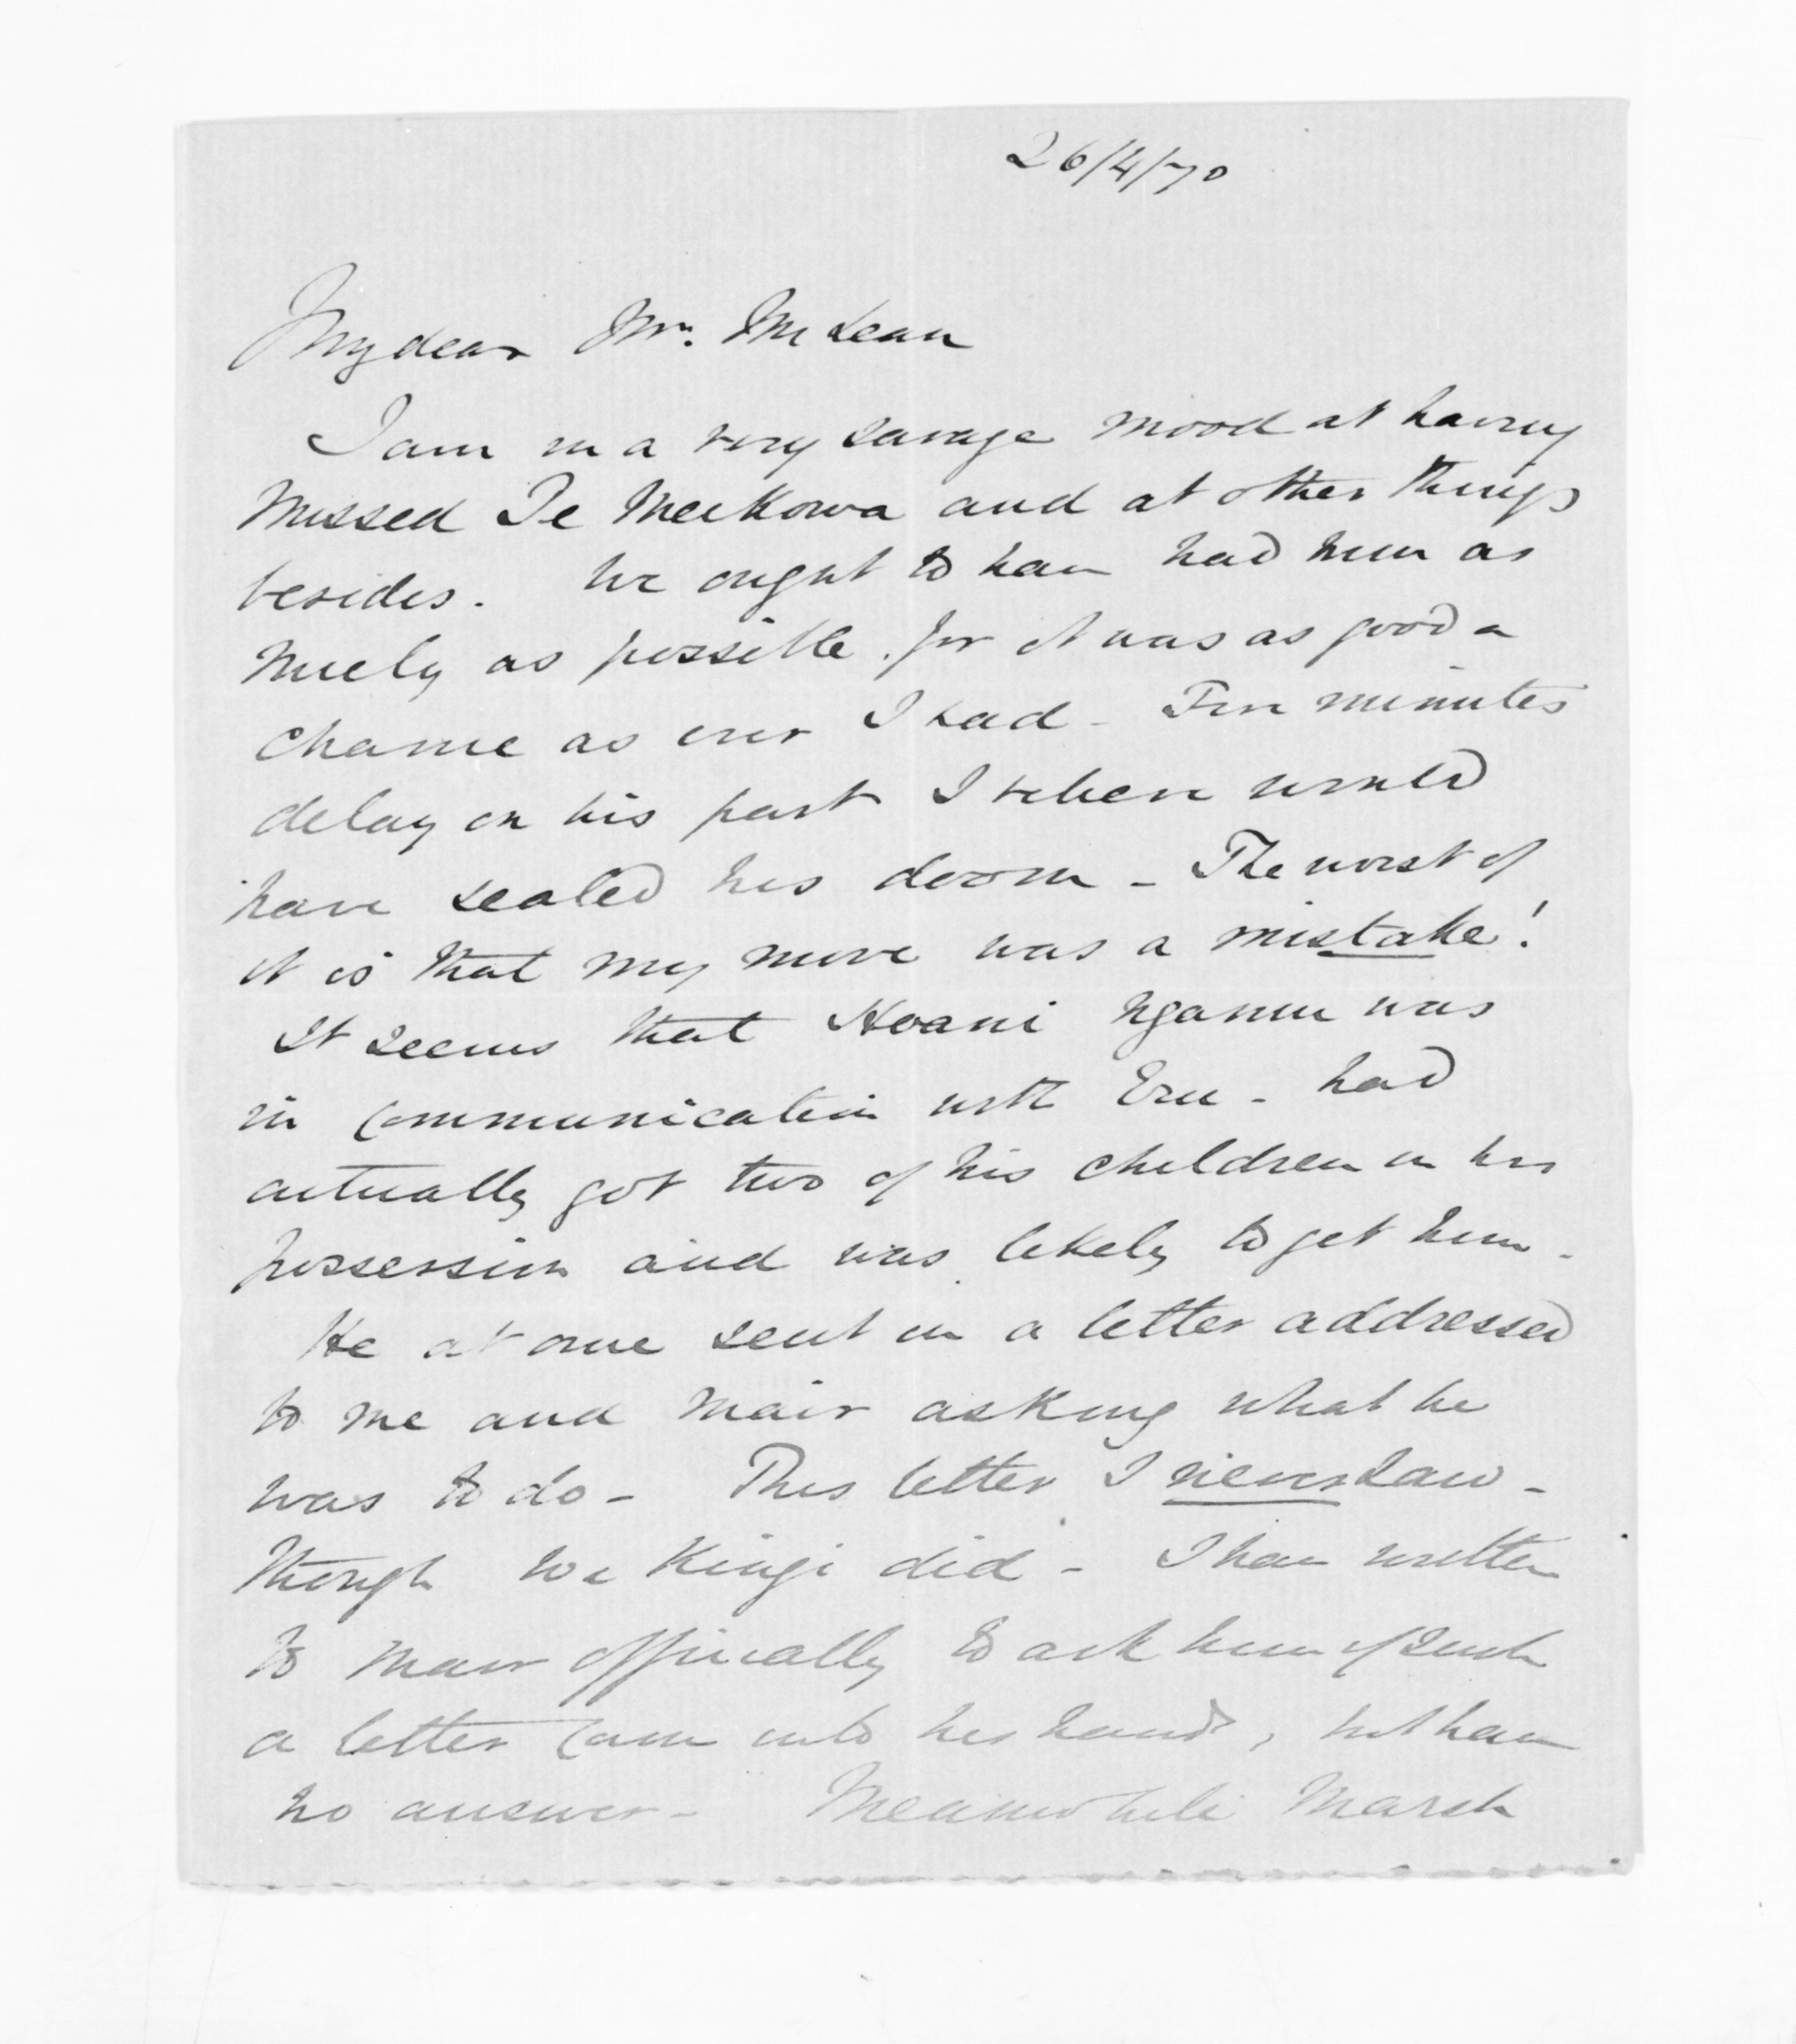 26/4/70
My dear Mr. McLean
I am in a very savage mood at having
missed Te Meihowa and at other things
besides. We ought to have had him as
nicely as possible. for it was as good a
chance as ever I had - Five minutes
delay on his part I believe would
have sealed his doom - The worst of
it is that my move was a mistake!
It seems that Hoani Ngamu was
in communication with Eru - had
actually got two of his children in his
possession and was likely to get him -
He at once sent in a letter addressed
to me and Mair asking what he
was to do - This letter I never saw -
though Wi Kingi did - I have written
to Mair officially to ask him if such
a letter came into his hands, but have
no answer - Meanwhile March